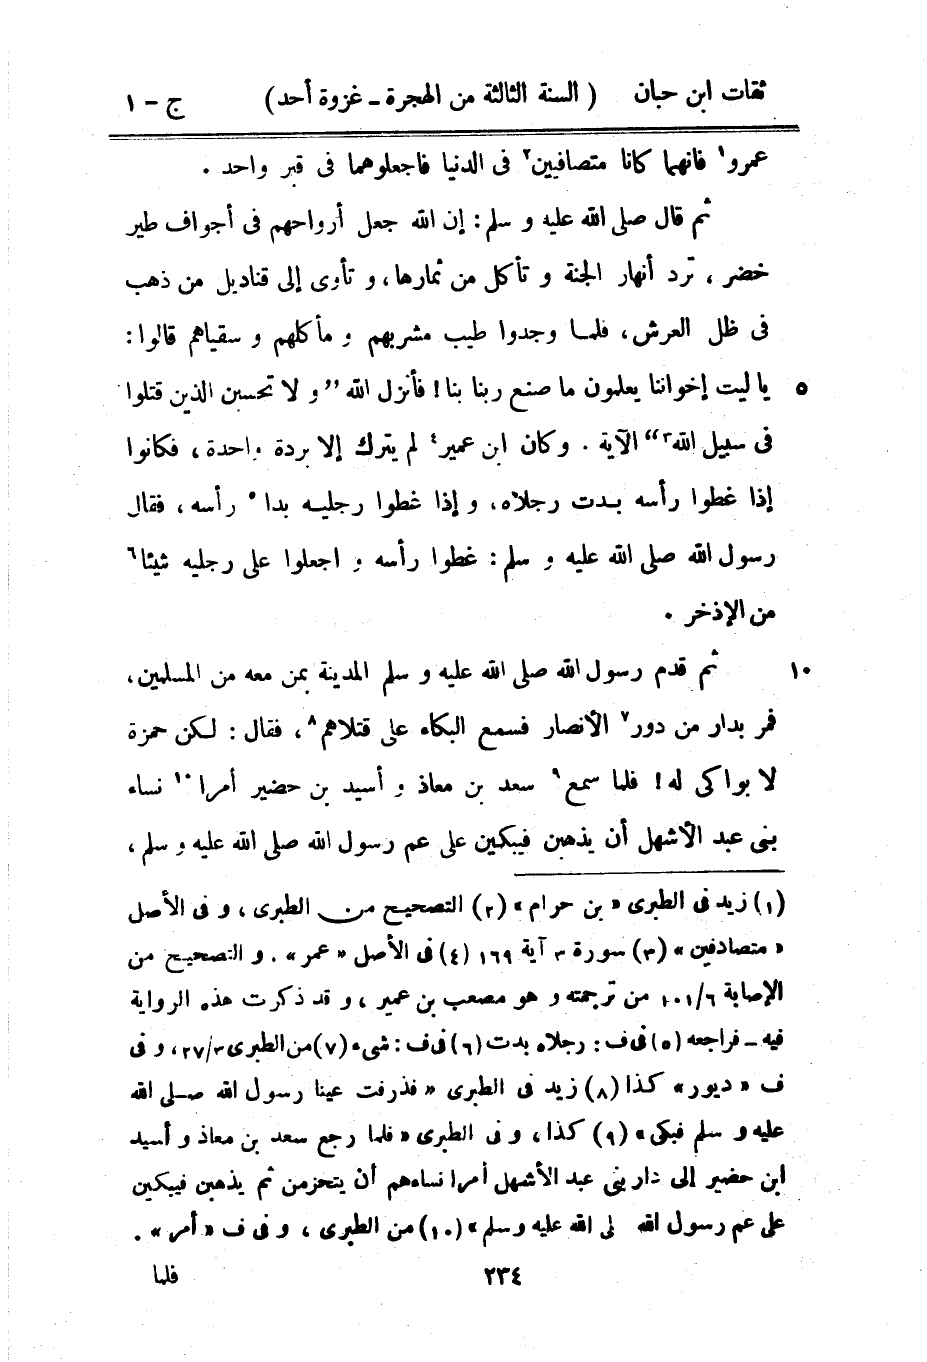 ثقات ابن حبان ( السنة الثالثة من الهجرة ـ غزوة أحد) ج - ١
عمرو١ فانهما كانا متصافيين٢ فى الدنيا فاجعلوهما فى قبر واحد .
ثم قال صلى الله عليه و سلم : إن الله جعل أرواحهم فى أجواف طير
خضر ، ترد أنهار الجنة و تأكل من ثمارها ، و تأوى إلى قناديل من ذهب
فى ظل العرش ، فلمـا وجدوا طيب مشربهم و مأكلهم و سقياهم قالوا :
يا ليت إخواننا يعلمون ما صنع ربنا بنا ! فأنزل الله ” و لا تحسبن الذين قتلوا ٥
فى سبيل الله٣ “ الآية . وكان ابن عمير٤ لم يترك إلا بردة واحدة ، فكانوا
إذا غطوا رأسه بـدت رجلاه ، و إذا غطوا رجليـه بدا٥ رأسه ، فقال
رسول الله صلى الله عليه و سلم : غطوا رأسه و اجعلوا على رجليه شيئا٦
من الإذخر .
ثم قدم رسول الله صلى الله عليه و سلم المدينة بمن معه من المسلمين ، ١٠
فمر بدار من دور٧ الأنصار فسمع البكاء على قتلاهم٨ ، فقال : لـكن حمزة
لا بواكى له ! فلما سمع٩ سعد بن معاذ و أسيد بن حضير أمرا١٠ نساء
بنى عبد الأشهل أن يذهبن فيبكين على عم رسول الله صلى الله عليه و سلم ،
(١) زيد فى الطبرى « بن حرام » (٢) التصحيح من الطبرى ، و فى الأصل
« متصادفين » (٣) سورة ٣ آية ١٦٩ (٤) فى الأصل « عمر » . و التصحيح من
الإصابة ٦/ ١٠١ من ترجمته و هو مصعب بن عمير ، و قد ذكرت هذه الرواية
فيه ـ فراجعه (٥) فى ف : رجلاه بدت (٦) فى ف : شىء (٧) من الطبرى ٣/ ٢٧ ، و فى
ف « ديور » كذا (٨) زيد فى الطبرى « فذرفت عينا رسول الله صـلى الله
عليه و سلم فبكى » (٩) كذا ، و فى الطبرى « فلما رجع سعد بن معاذ و أسيد
ابن حضير إلى دار بنى عبد الأشهل أمرا نساءهم أن يتحزمن ثم يذهبن فيبكين
على عم رسول الله لى الله عليه وسلم » (١٠) من الطبرى ، و فى ف « أمر » .
٢٣٤ فلما